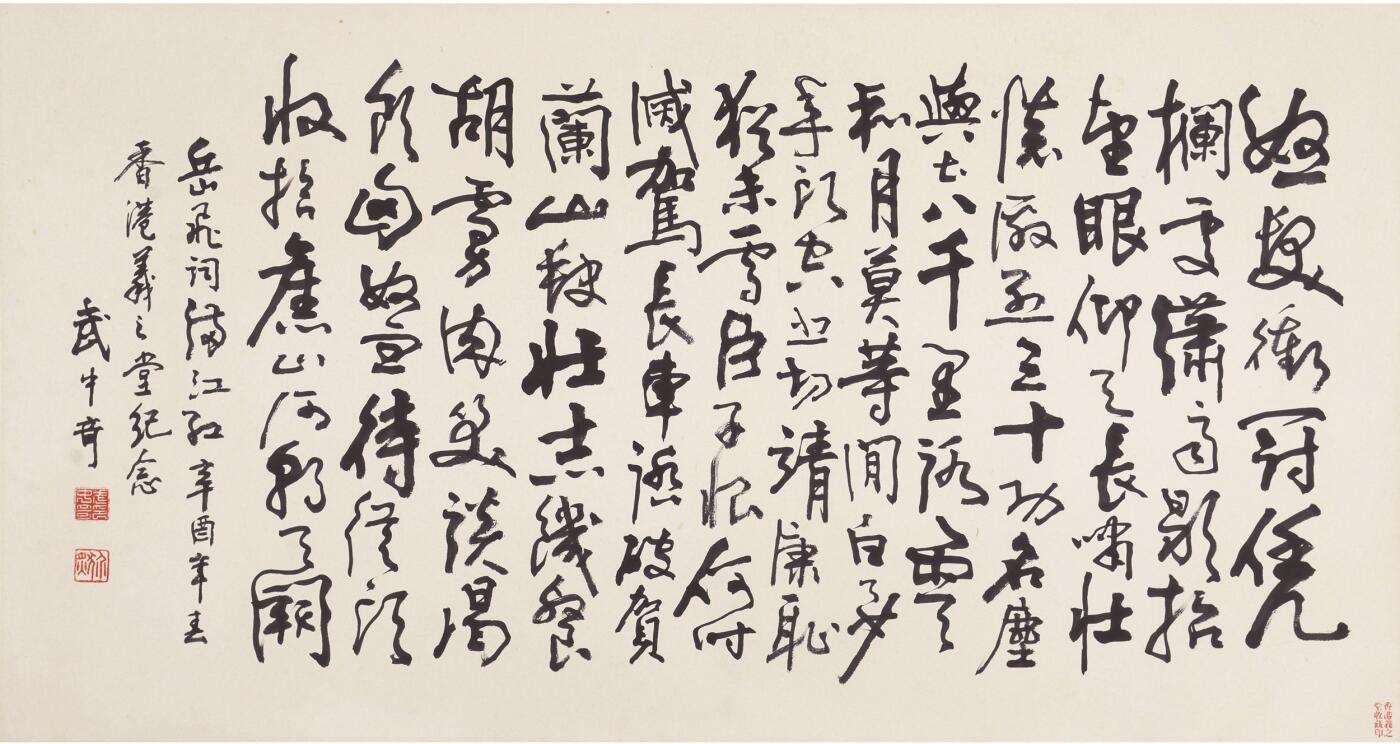 怒髮衝冠凭
欄處瀟雨歇抬
望眼仰天長嘯壯
懷激烈三十功名塵
與土八千里路雲
和月莫等閒白了少
年頭空悲切靖康恥
猶未雪臣子恨何時
滅駕長車踏破賀
蘭山缺壯志饑餐
胡虜肉笑談渴
飲匈奴血待從頭
收拾舊山河朝天闕
岳飛詞滿江紅辛酉年春
香港義之堂紀念
武中奇
香港義之
堂收藏印